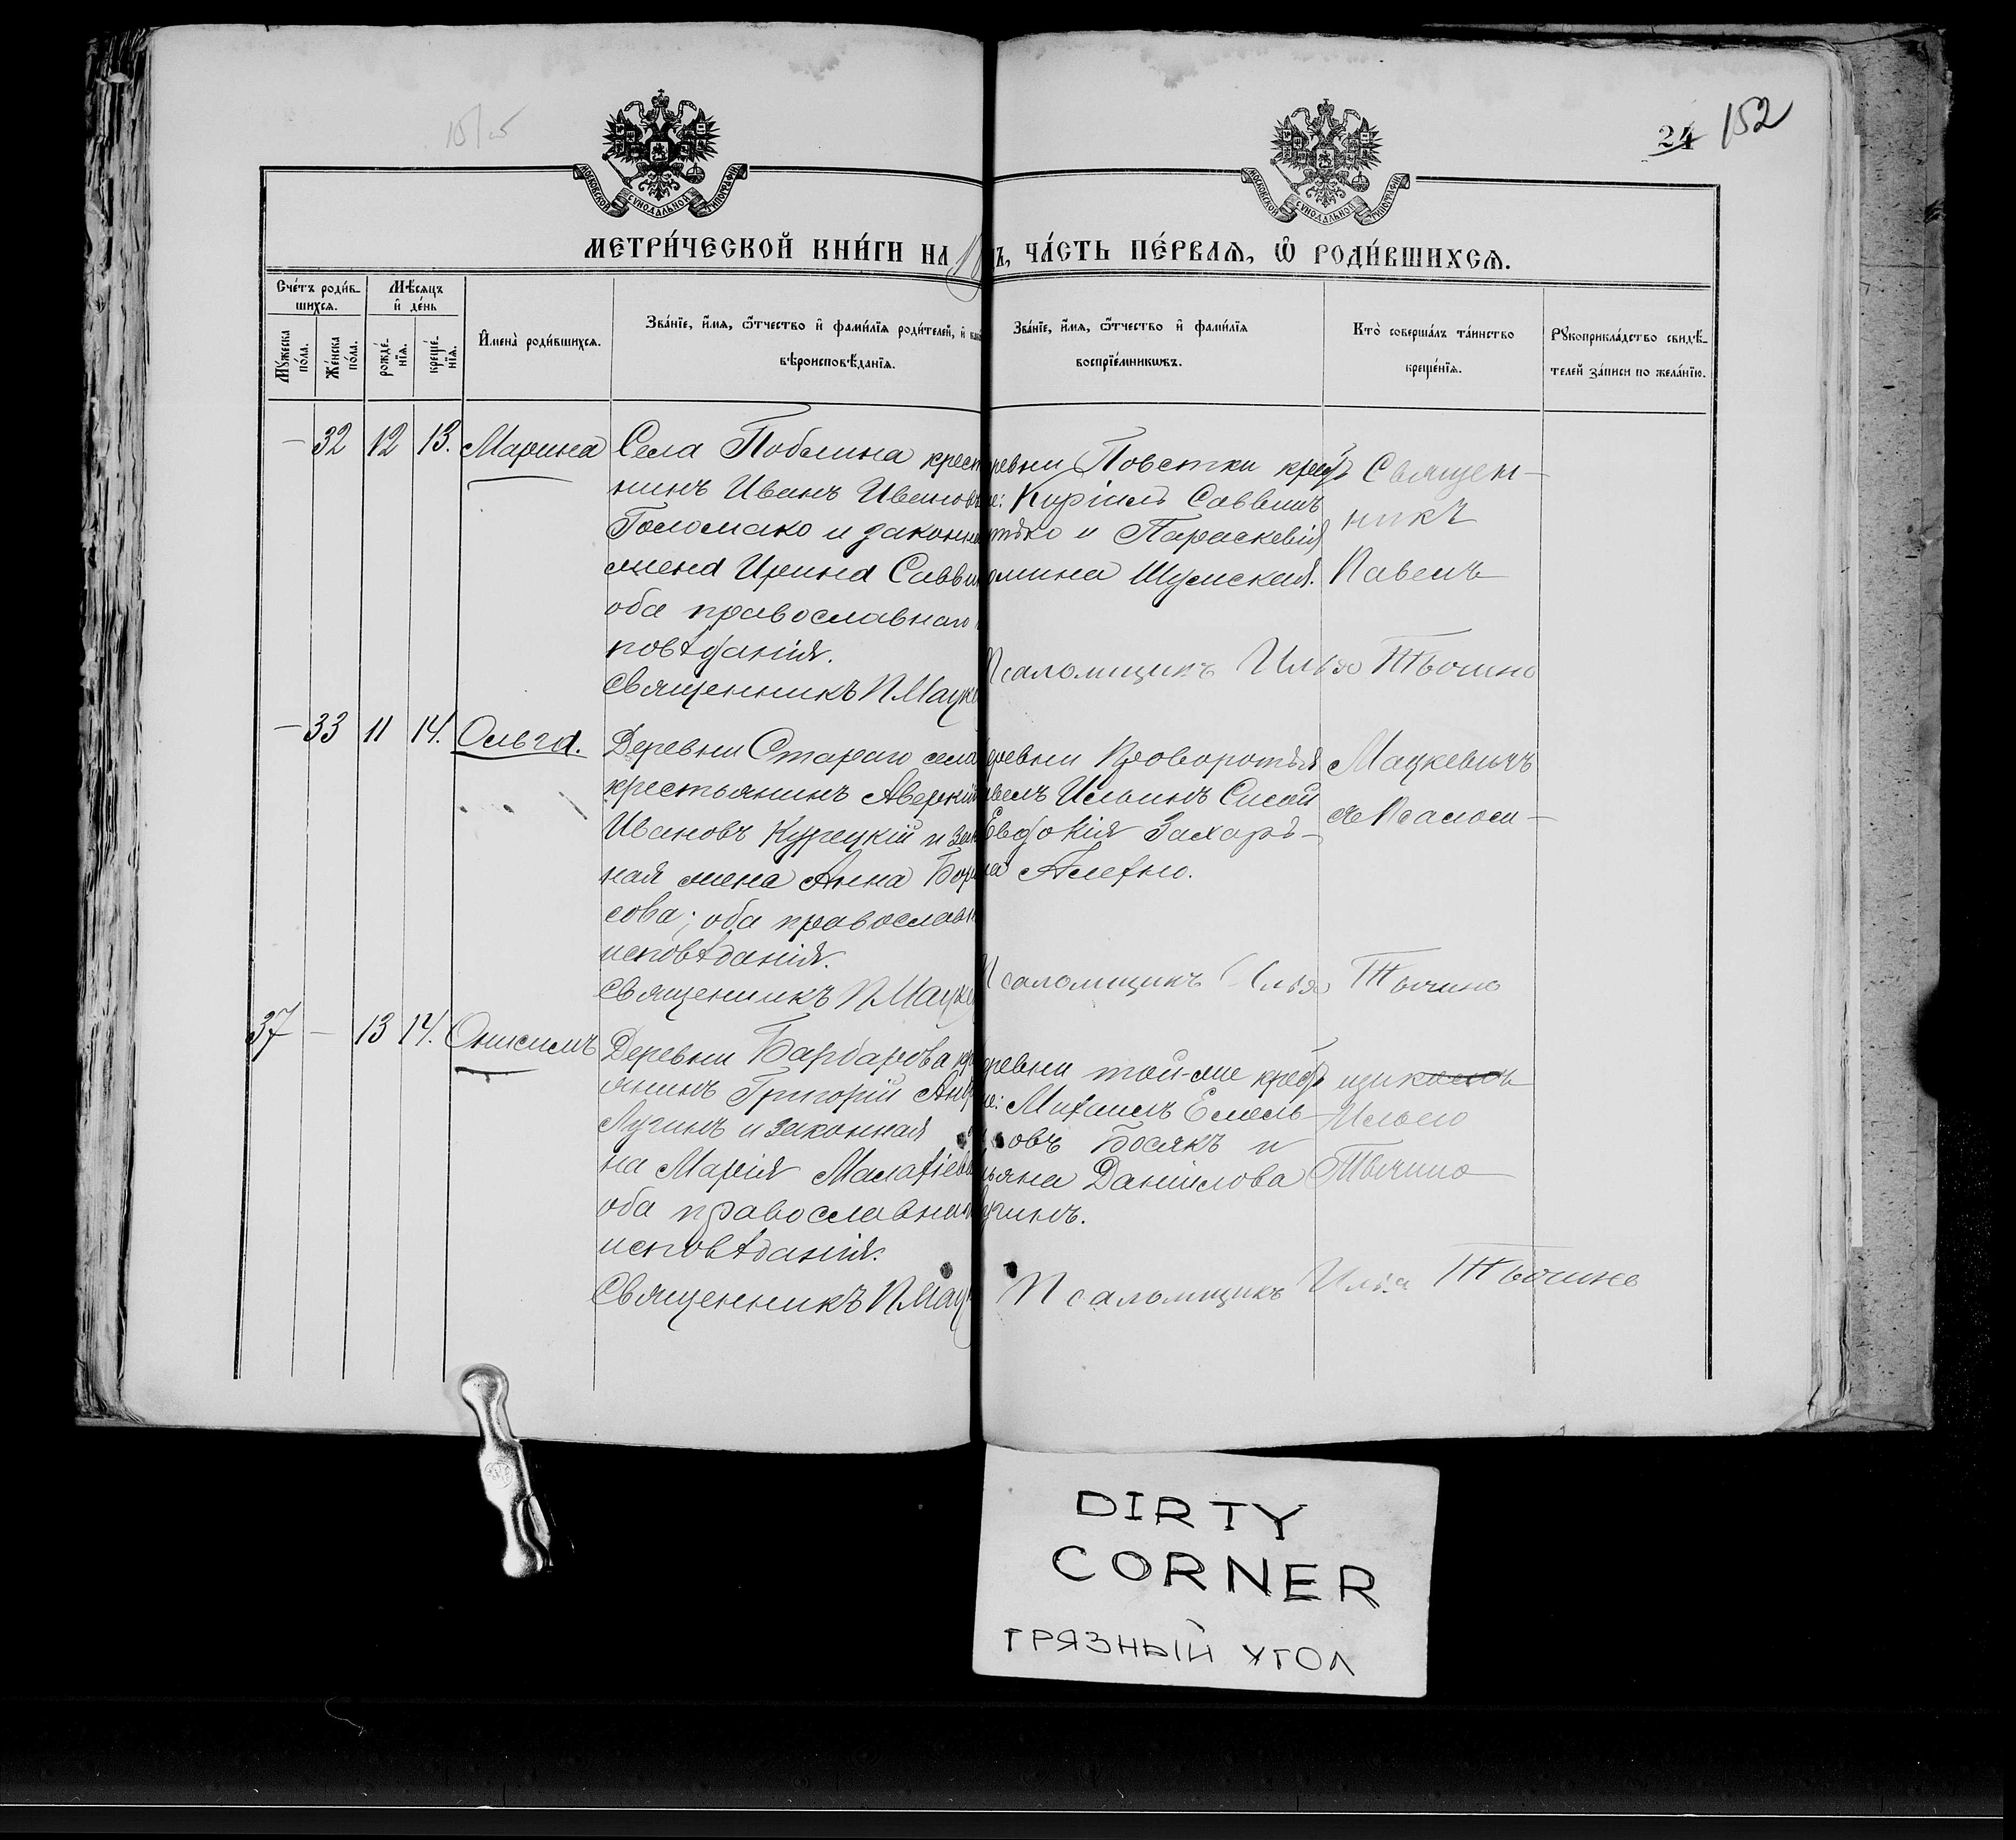 24 152
МОСКОВСКОЙ СѴНОДАЛЬНОЙ ТИПОГРАФІИ
МОСКОВСКОЙ СѴНОДАЛЬНОЙ ТИПОГРАФІИ
МЕТРИ́ЧЕСКОЙ КНИ́ГИ НА
Ъ, ЧА́СТЬ ПЕ́РВАѦ, Ѽ РОДИ́ВШИХСѦ.
Сче́тъ роди́в-
шихсѧ.
Мꙋ́жеска по́ла.
Же́нска по́ла.
Мѣ́сяцъ
и҆ де́нь
рожде́-
нїѧ.
креще́-
нїѧ.
И҆мена̀ роди́вшихсѧ.
Зва́нїе, и҆́мѧ, ѻ҆́тчество и҆ фами́лїѧ роди́телей, и҆
вѣроисповѣ́данїѧ.
Зва́нїе, и҆́мѧ, ѻ҆́тчество и҆ фами́лїѧ
воспрїе́мникѡвъ.
Кто̀ соверша́лъ та́инство
креще́нїѧ.
Рꙋкоприкла́дство свидѣ́-
телей за́писи по жела́нїю.
— 32 12 13. Марина
Села Поблина крест
нинъ Иванъ Иванов
Голомако и законн
жена Ирина Савви
оба православнаго
повѣданія.
Священникъ П Мацке
ревни Повстки
Кирилъ Саввинъ
тько и Параскевія
омина Шумская.
Псаломщикъ Илья Тычино
Священ-
никъ
Павелъ
— 33 11 14. Ольга.
Деревни Стараго села
крестьянинъ Аверкій
Ивановъ Курецкій и зак
ная жена Анна Бори
сова; оба православн
исповѣданія.
Священникъ П Мацке
ревни Проворотья
велъ Ильинъ Сисой
Евдокія Захарь-
на Алехно.
Псаломщикъ Илья Тычино
Мацкевичъ
съ Псалом-
37 — 13 14. Онисимъ
Деревни Барбарова кр
янинъ Григорій Анд
Лучинъ и законная
на Марія Малахіев
оба православна
исповѣданія.
Священникъ П Мацк
ревни той-же
Михаилъ Емель-
овъ Босякъ и
ьяна Даніилова
учинъ.
Псаломщикъ Илья Тычино
щикомъ
Ильею
Тычино
DIRTY
CORNER
ГРЯЗНЫЙ УГОЛ